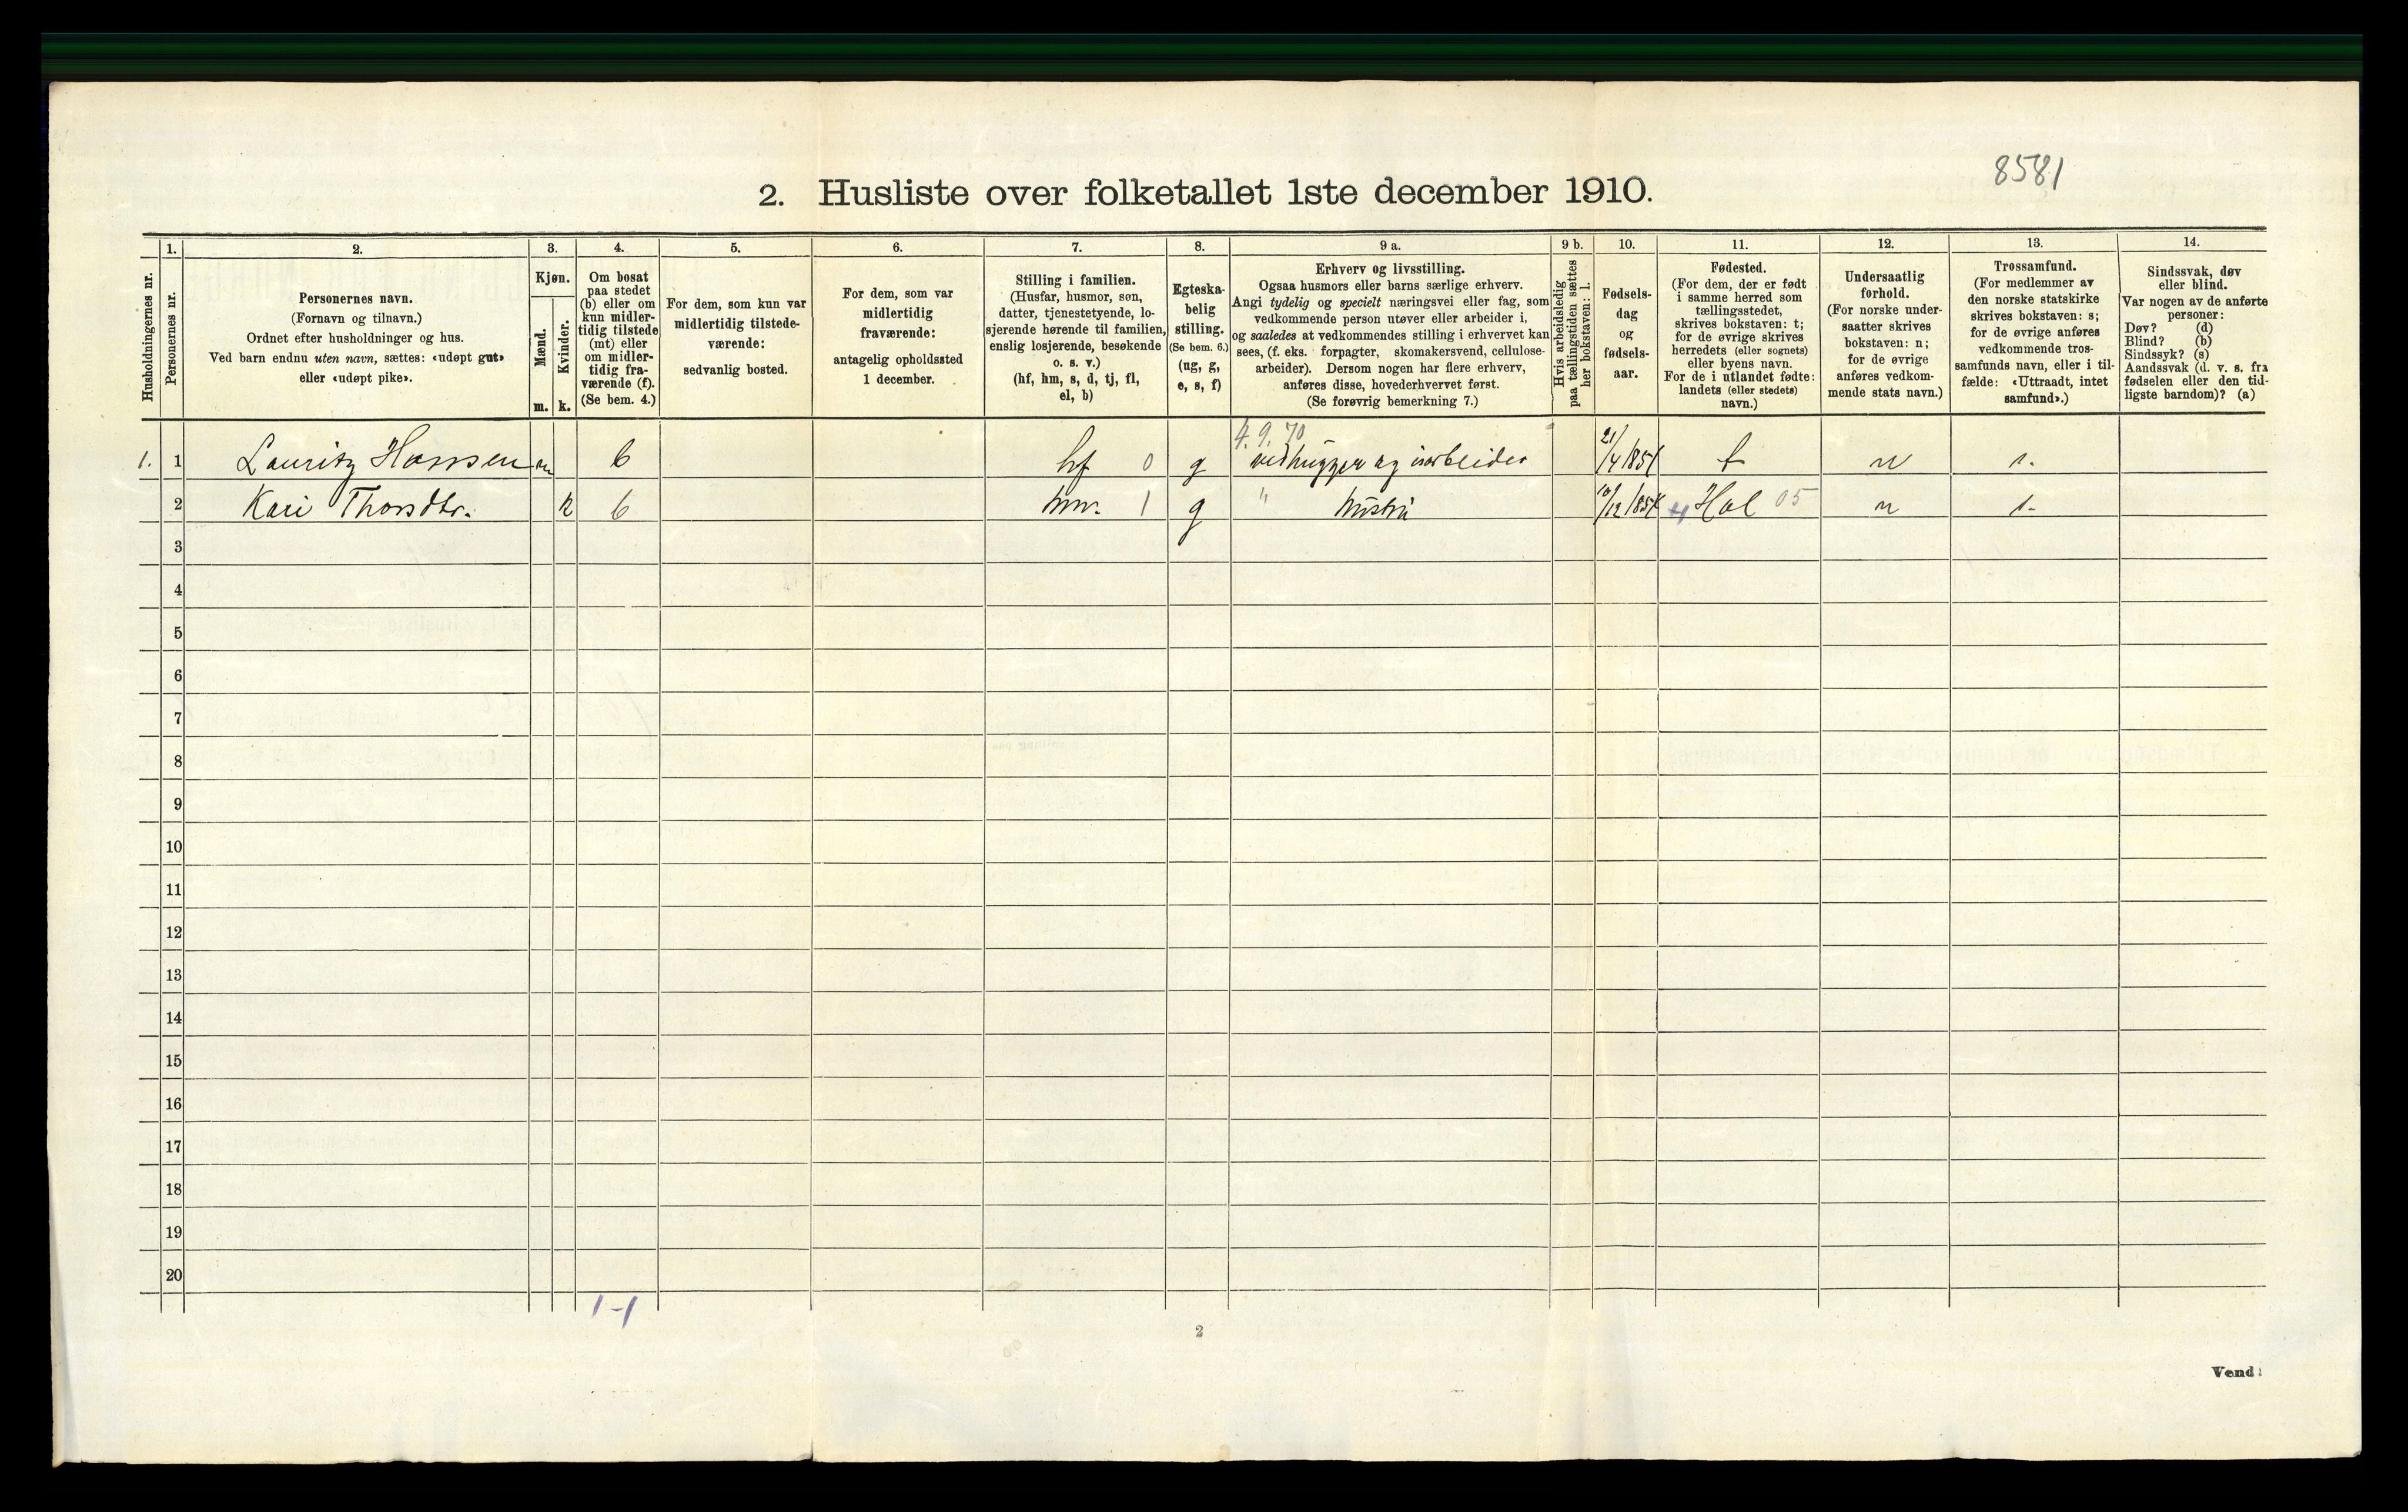 8581
2. Husliste over folketallet 1ste december 1910.
Husholdningernes nr.
1.
Personernes nr.
2.
Personernes navn.
(Fornavn og tilnavn.)
Ordnet efter husholdninger og hus.
Ved barn endnu uten navn, sættes: «udøpt gut»
eller «udøpt pike».
3.
Kjøn.
Mænd.
Kvinder.
m.
k.
4.
Om bosat
paa stedet
(b) eller om
kun midler-
tidig tilstede
(mt) eller
om midler-
tidig fra-
værende (f).
(Se bem. 4.)
5.
For dem, som kun var
midlertidig tilstede-
værende:
sedvanlig bosted.
6.
For dem, som var
midlertidig
fraværende:
antagelig opholdssted
1 december.
7.
Stilling i familien.
(Husfar, husmor, søn,
datter, tjenestetyende, lo-
sjerende hørende til familien,
enslig losjerende, besøkende
o. s. v.)
(hf, hm, s, d, tj, fl,
el, b)
8.
Egteska-
belig
stilling.
(Se bem. 6.)
(ug, g,
e, s, f)
9 a.
Erhverv og livsstilling.
Ogsaa husmors eller barns særlige erhverv.
Angi tydelig og specielt næringsvei eller fag, som
vedkommende person utøver eller arbeider i,
og saaledes at vedkommendes stilling i erhvervet kan
sees, (f. eks. forpagter, skomakersvend, cellulose-
arbeider). Dersom nogen har flere erhverv,
anføres disse, hovederhvervet først.
(Se forøvrig bemerkning 7.)
9 b.
Hvis arbeidsledig
paa tællingstiden sættes
her bokstaven: l.
10.
Fødsels-
dag
og
fødsels-
aar.
11.
Fødested.
(For dem, der er født
i samme herred som
tællingsstedet,
skrives bokstaven: t;
for de øvrige skrives
herredets (eller sognets)
eller byens navn.
For de i utlandet fødte:
landets (eller stedets)
navn.)
12.
Undersaatlig
forhold.
(For norske under-
saatter skrives
bokstaven: n;
for de øvrige
anføres vedkom-
mende stats navn.)
13.
Trossamfund.
(For medlemmer av
den norske statskirke
skrives bokstaven: s;
for de øvrige anføres
vedkommende tros-
samfunds navn, eller i til-
fælde: «Uttraadt, intet
samfund».)
14.
Sindssvak, døv
eller blind.
Var nogen av de anførte
personer:
Døv? (d)
Blind? (b)
Sindssyk? (s)
Aandssvak (d. v. s. fra
fødselen eller den tid-
ligste barndom)? (a)
4.9.70
1. 1 Lauritz Hansen m b hf 0 g vedhugger og isarbeider 21/4 185 t n s.
2 Kari Thorsdtr. k b hm. 1 g " hustru 10/12 185 Hol 05 n s.
3
4
5
6
7
8
9
10
11
12
13
14
15
16
17
18
19
20
1-1
2
Vend!